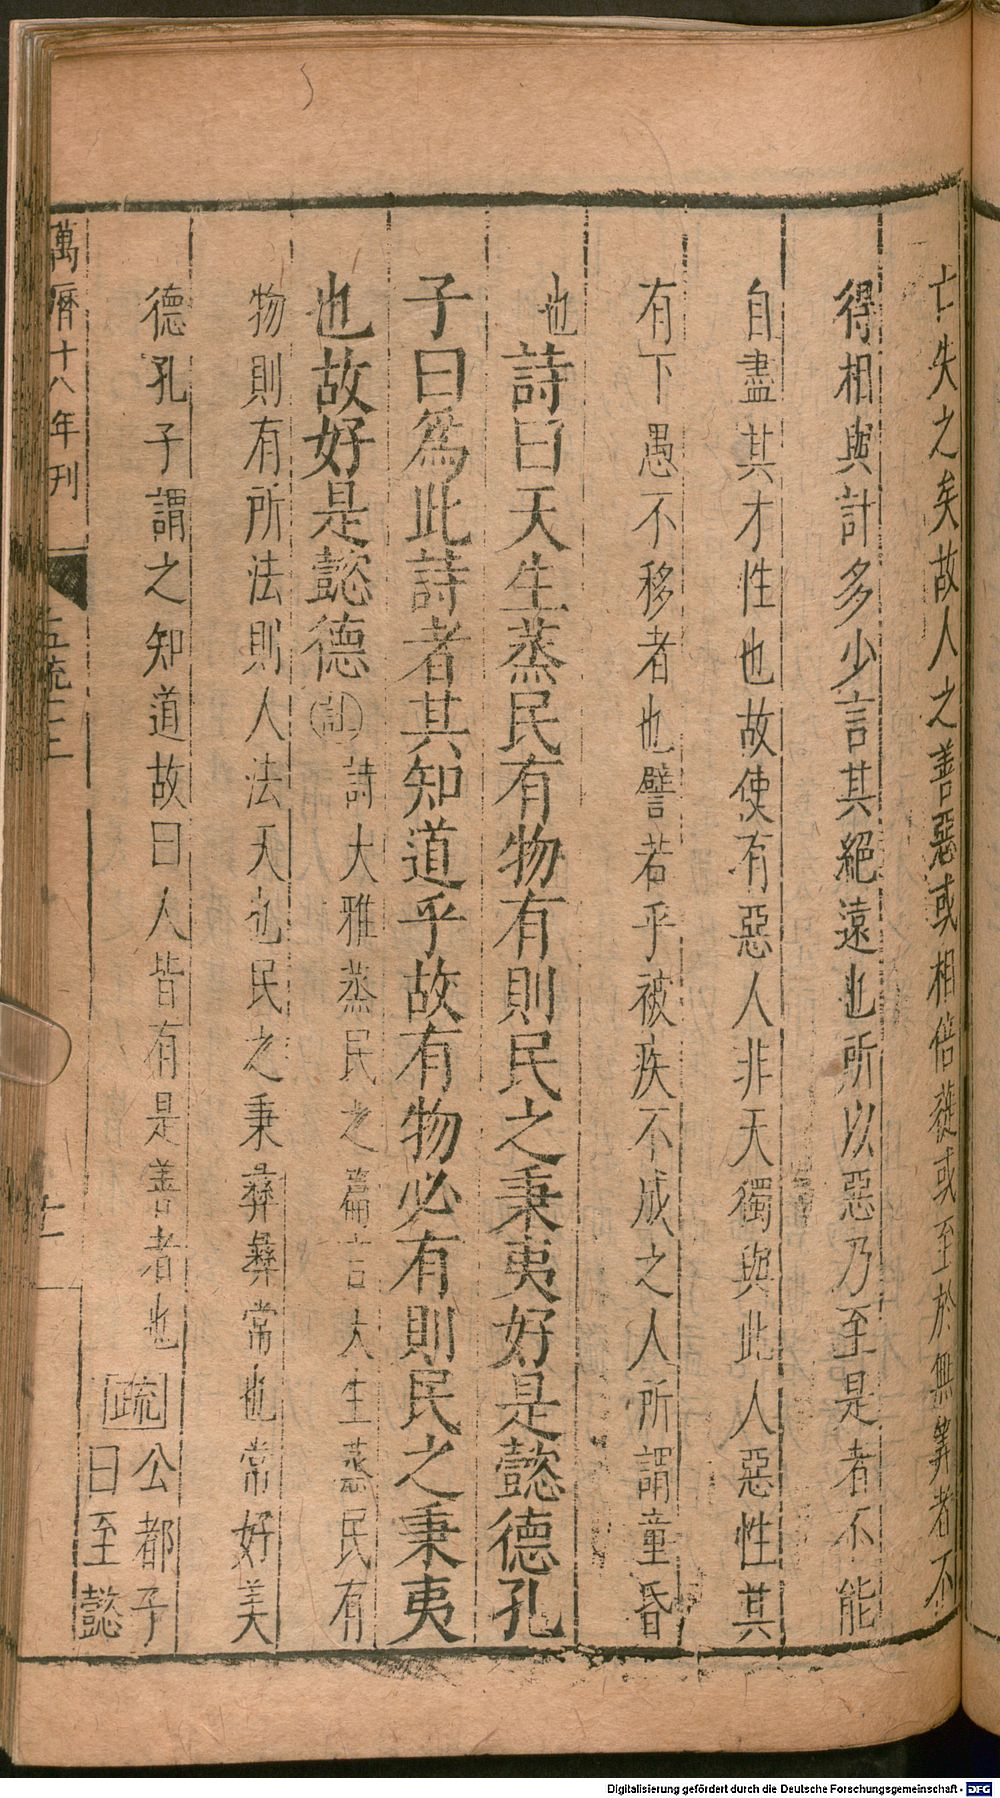 亡失之矣故人之善惡或相倍蓰或至於無筭者不
得相與計多少言其絕遠也所以惡乃至是者不能
自盡其才性也故使有惡人非天獨與此人惡性其
有下愚不移者也譬若乎被疾不成之人所謂童昏
也詩曰天生蒸民有物有則民之秉夷好是懿德孔
子曰爲此詩者其知道乎故有物必有則民之秉夷
也故好是懿德註詩大雅蒸民之篇言天生蒸民有
物則有所法則人法天也民之秉彞彞常也常好美
德孔子謂之知道故曰人皆有是善者也疏公都子
曰至懿
萬曆十八年刊
Digitalisierung gefördert durch die Deutsche Forschungsgemeinschaft - DFG